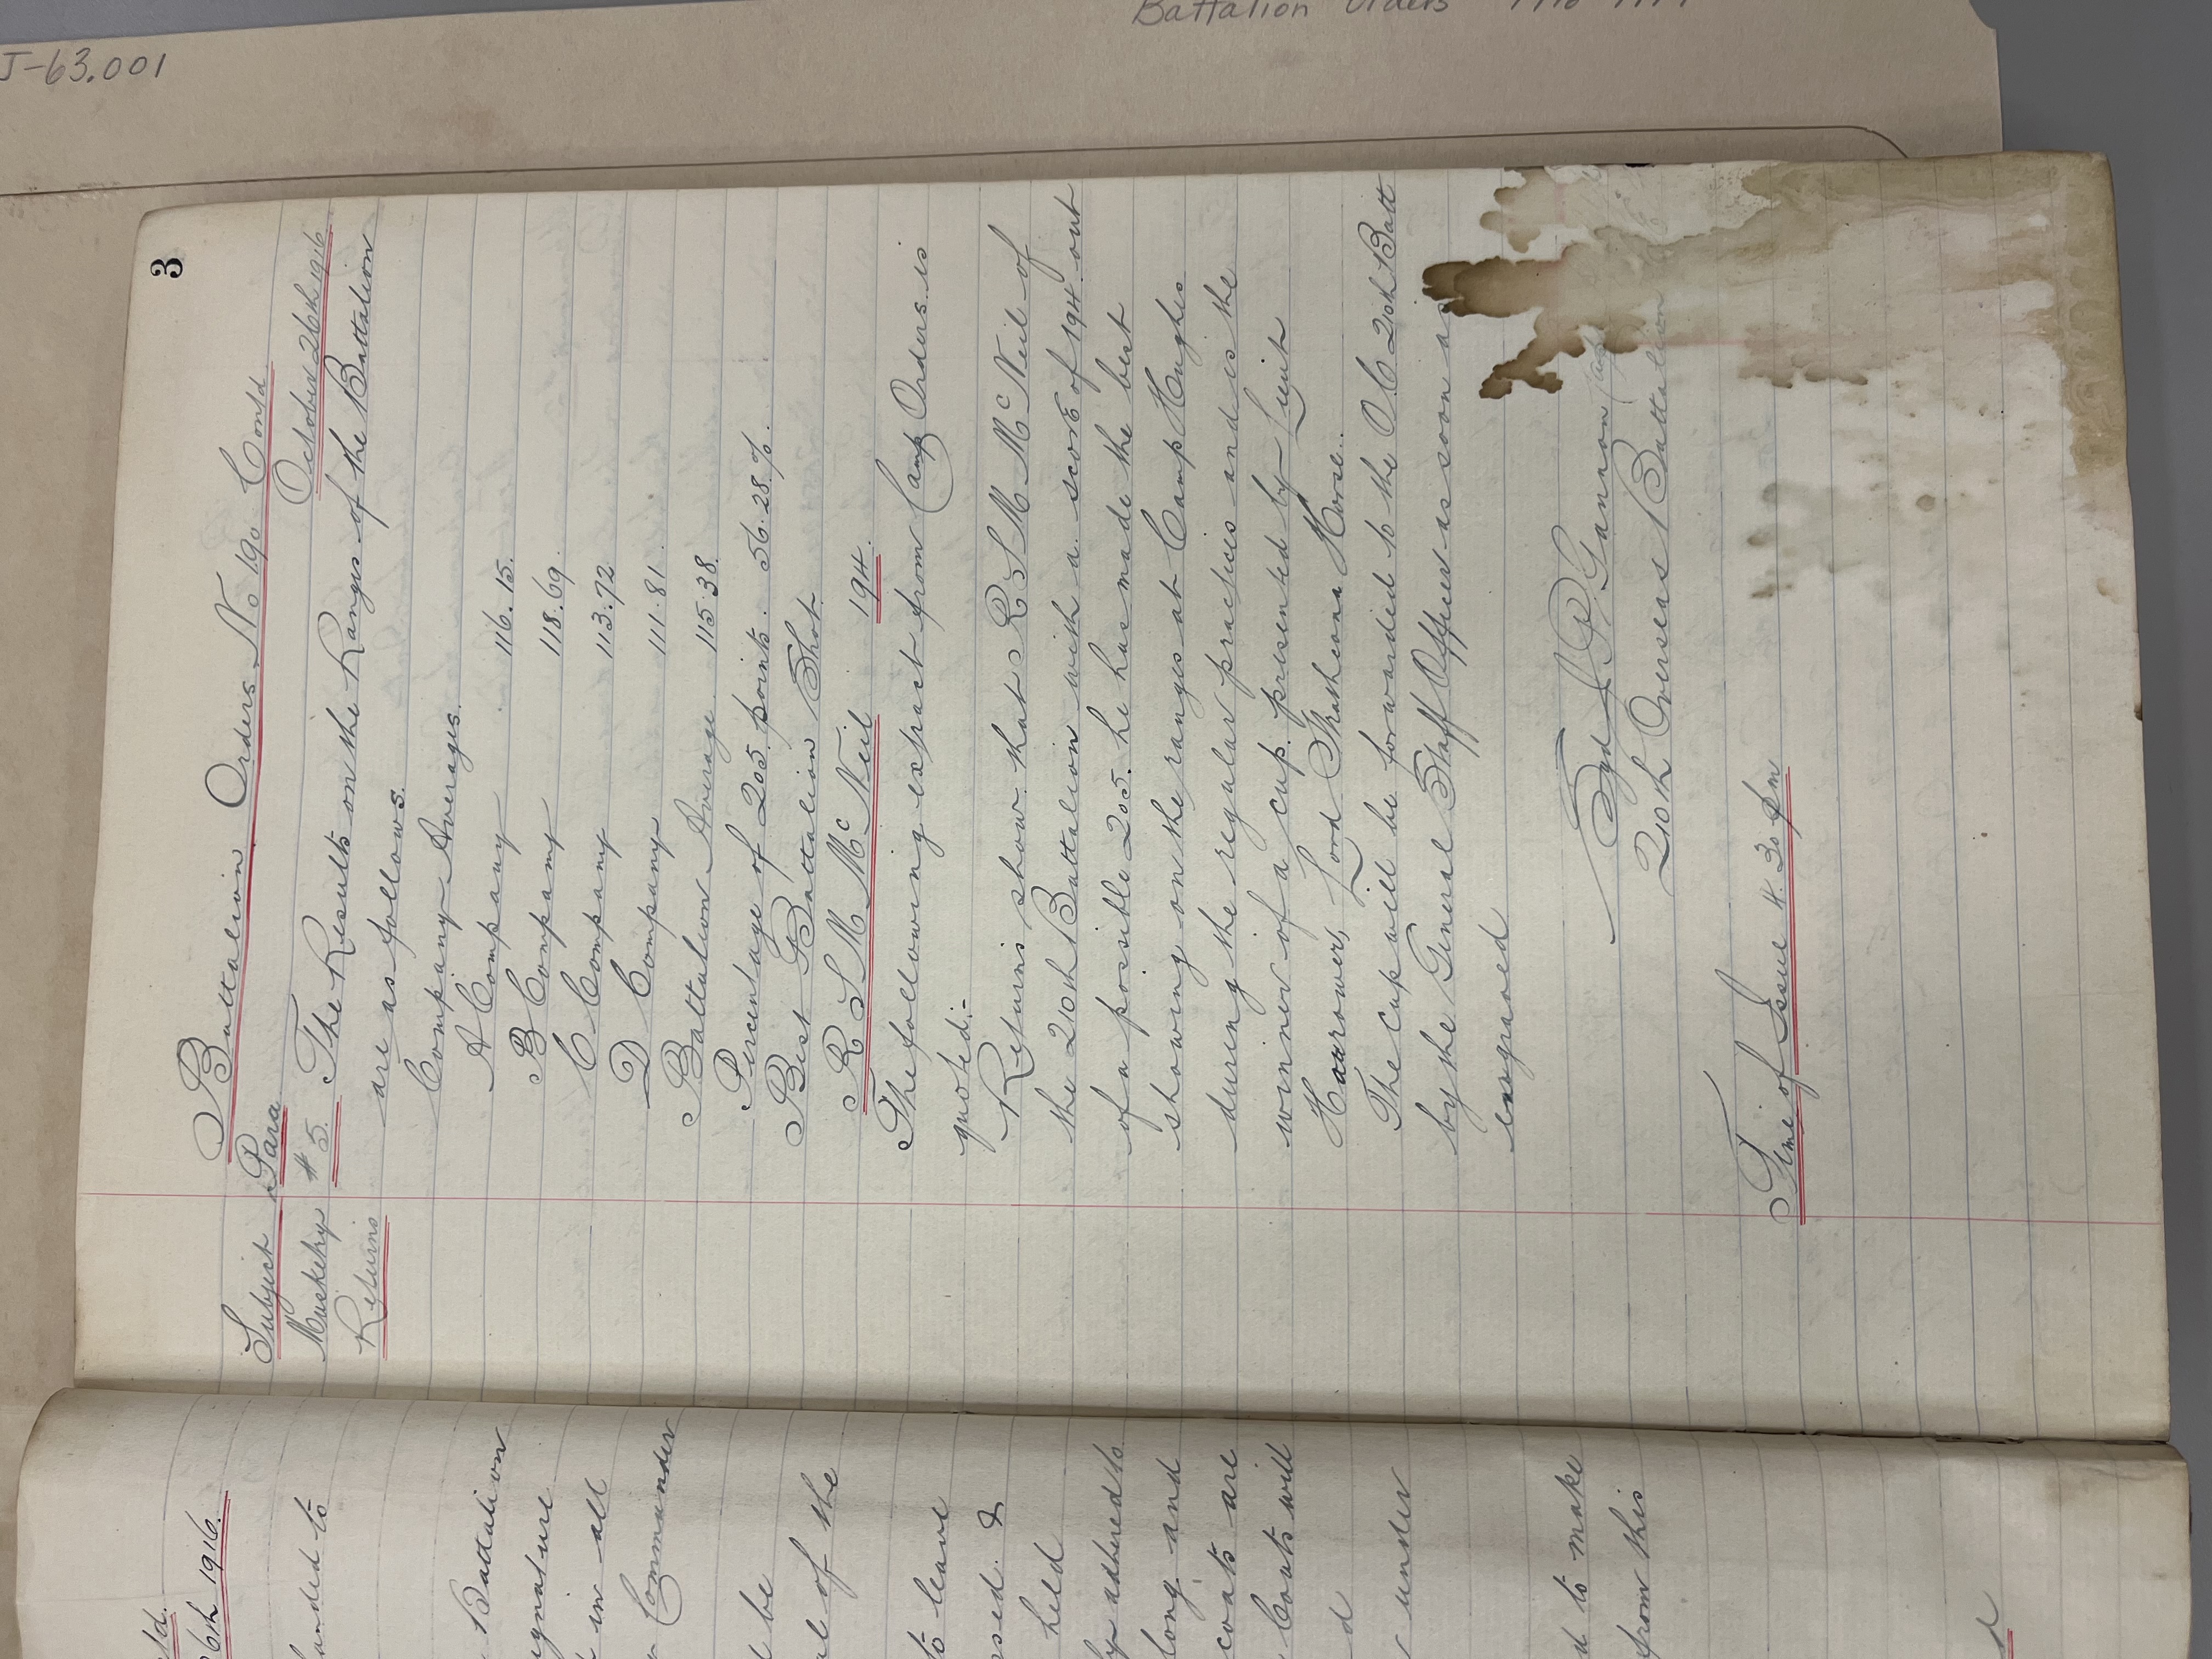 J-63.001
Battalion Orders 1916-1917
3
Battalion Orders No 190 Contd
October 26th 1916
Subject Para
Musketry # 5. The Results on the Ranges of the Battalion
Returns are as follows.
Company Averages.
A Company 116.15.
B Company 118.69.
C Company 113.72
D Company 111.81.
Battalion Average. 115.38.
Percentage of 205 points. 56.28%.
Best Battalion Shot.
R S M McNeil 194.
The following extract from Camp Orders is
quoted:-
Returns show that R S M McNeil of
the 210th Battalion with a score of 194 out
of a possible 205. he has made the best
showing on the ranges at Camp Hughes
during the regular practices and is the
winner of a cup presented by Lieut
Haarrower, Lord Strathcona Horse.
The cup will be forwarded to the OC 210th Batt
by the General Staff Officer as soon as
engraved
Sgd J P Gannon Capt
210th Overseas Battalion
Time of Issue 4.30 pm
td.
6th 1916.
handed to
Battalion
gnature
in all
Commander
be
of the
to leave
sed. &
held
adhered to
long and
coats are
Coats will
d
under
d to make
from this